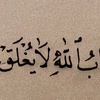 بُ ٱللَّهِ لَا يُغْلَقُ